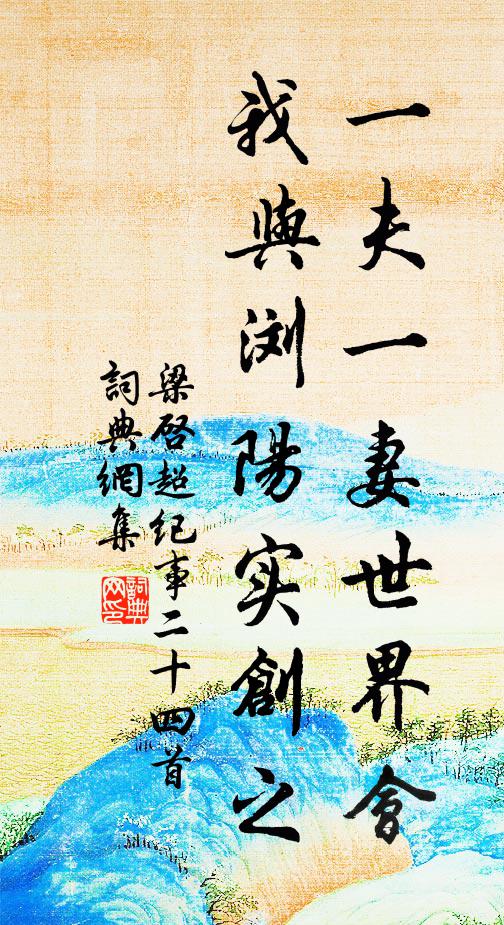 一夫一妻世界會
我與浏陽实創之
梁啓超纪事二十四首
詞典網集
詞典